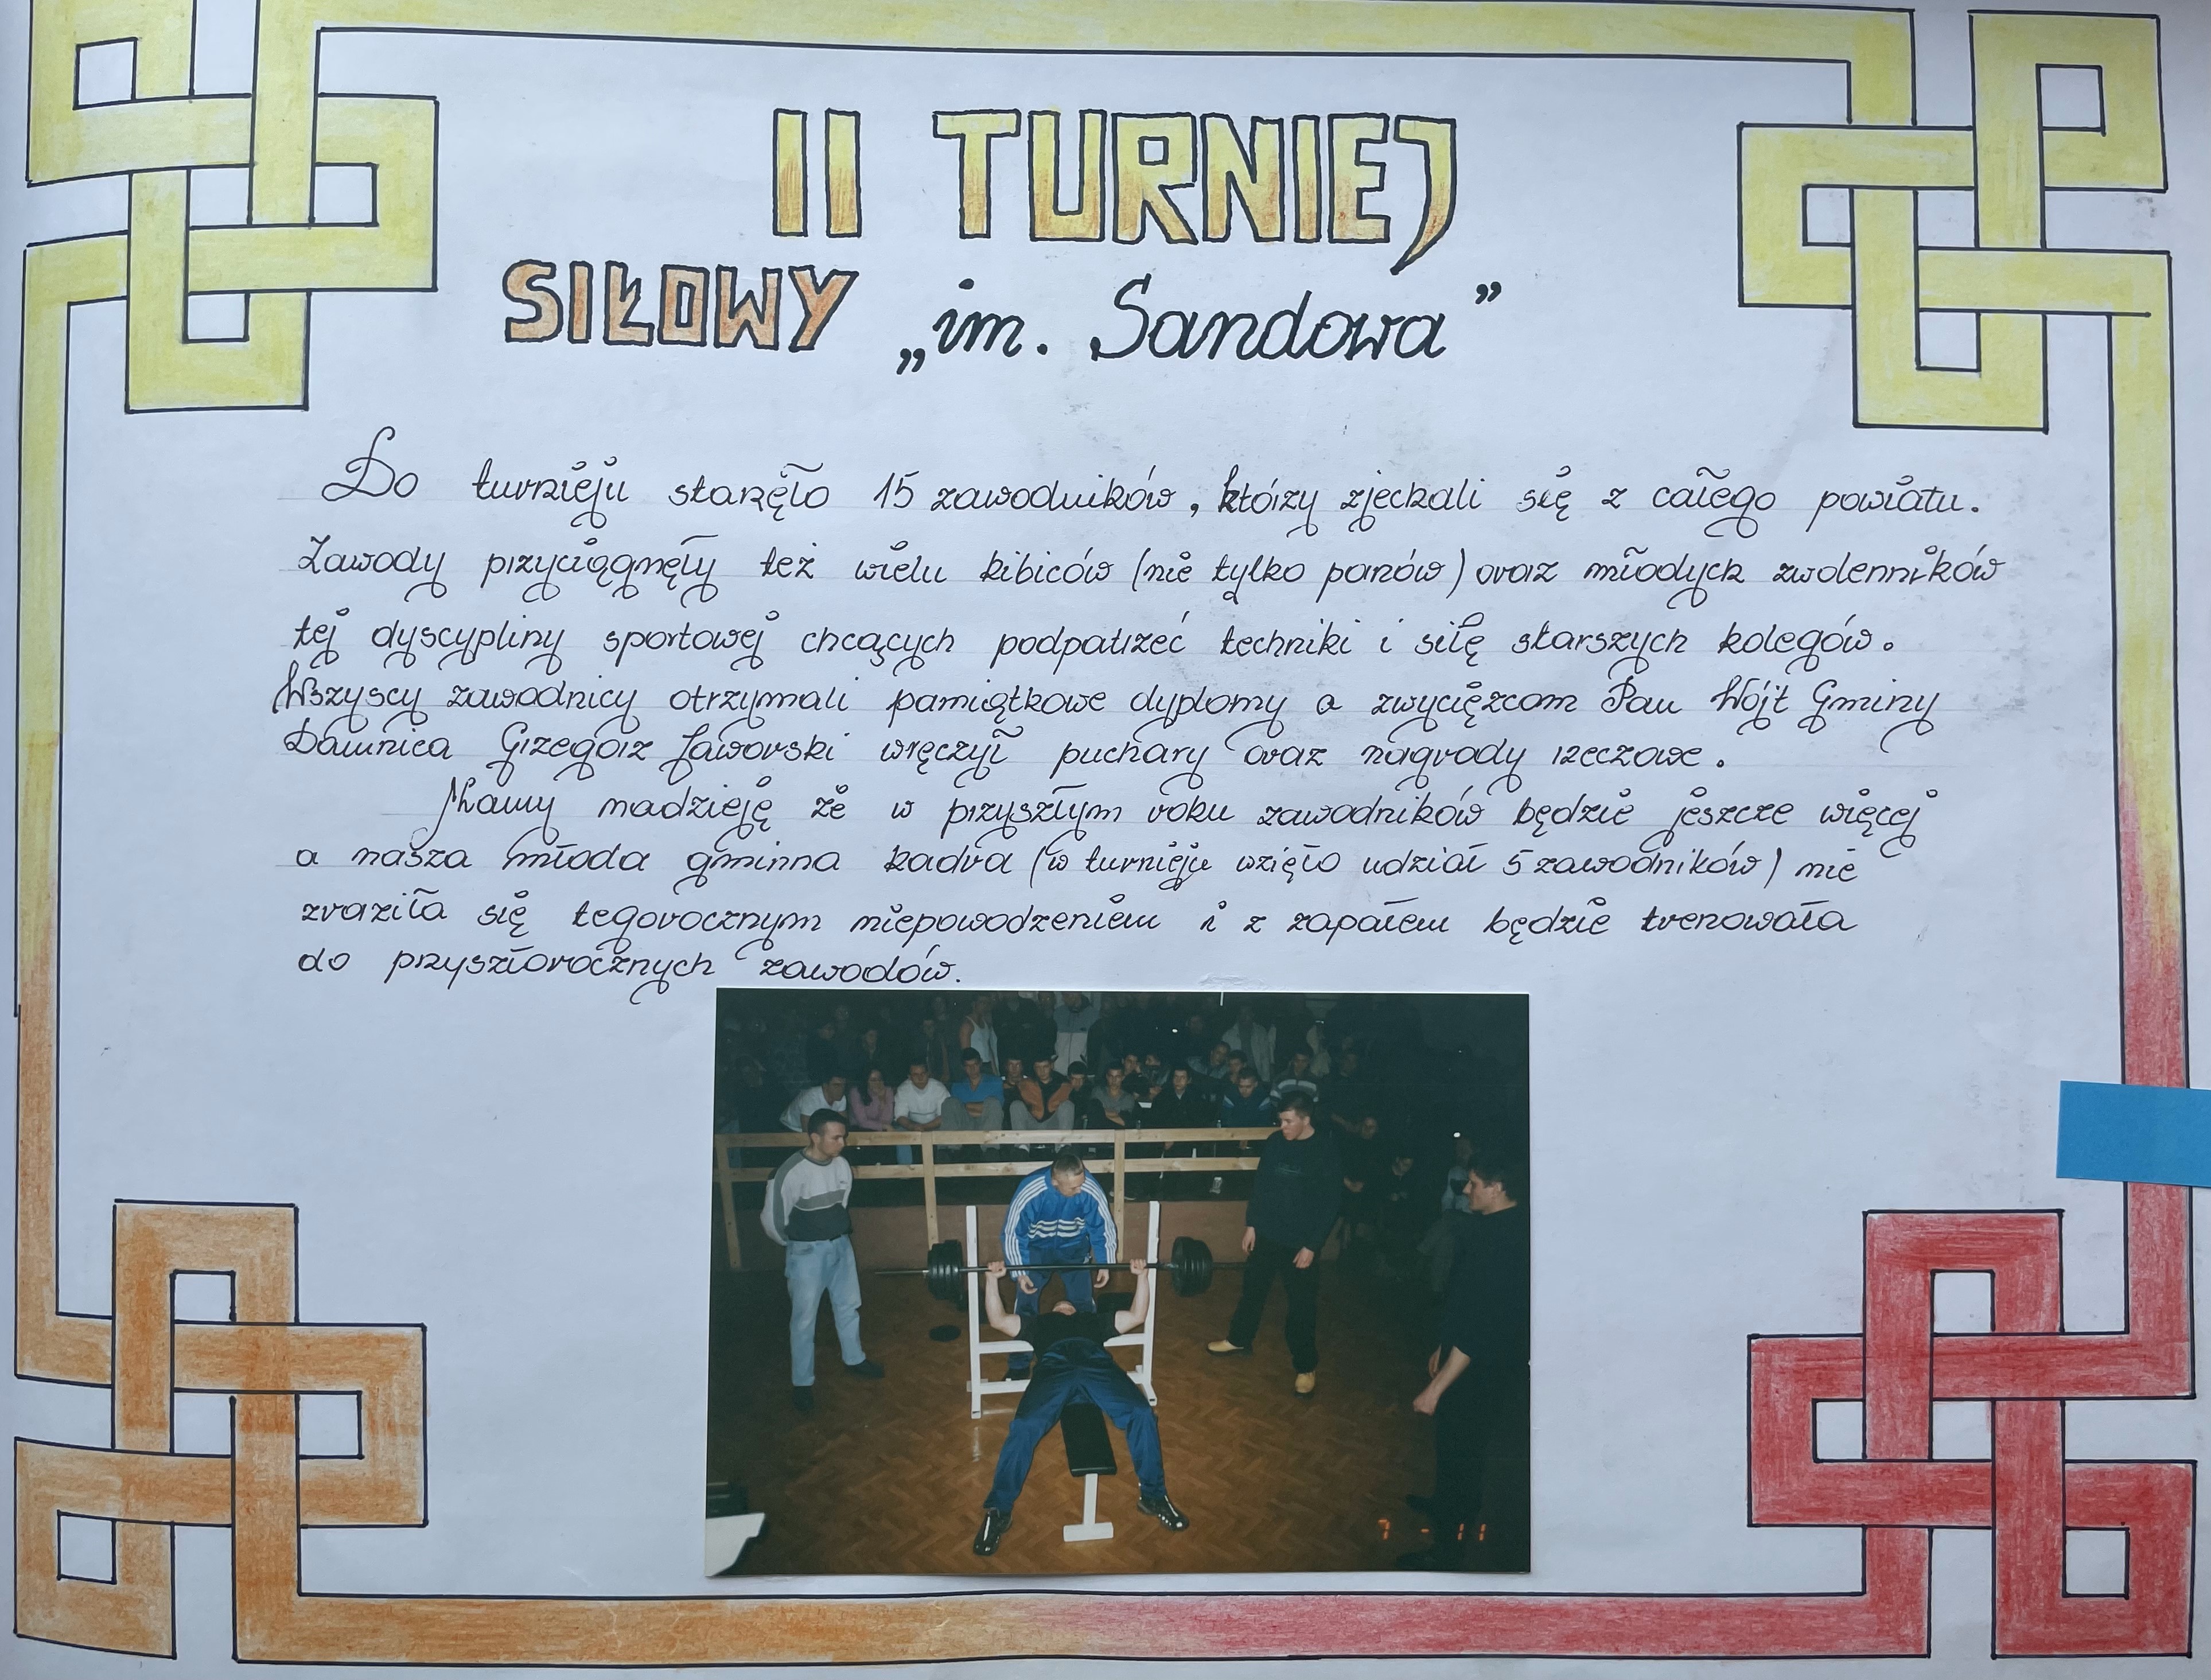 II TURNIEJ
SIŁOWY „im. Sandowa"
Do turnieju stanęło 15 zawodników, którzy zjechali się z całego powiatu.
Zawody przyciągnęły też wielu kibiców (nie tylko panów) oraz młodych zwolenników
tej dyscypliny sportowej chcących podpatrzeć techniki i siłę starszych kolegów.
Wszyscy zawodnicy otrzymali pamiątkowe dyplomy a zwycięzcom Pan Wójt Gminy
Damnica Grzegorz Jaworski wręczył puchary oraz nagrody rzeczowe.
Mamy nadzieję że w przyszłym roku zawodników będzie jeszcze więcej
a nasza młoda gminna kadra (w turnieju wzięło udział 5 zawodników) nie
zraziła się tegorocznym niepowodzeniem i z zapałem będzie trenowała
do przyszłorocznych zawodów.
7 - 11